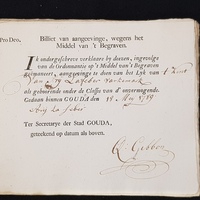 Pro Deo.
Billet van aangeevinge, wegens het
Middel van 't Begraven.
Ik ondergeschreve verklaare by deezen, ingevolge
van de Ordonnantie op 't Middel van 't Begraven
geëmaneert, aangeevinge te doen van het Lyk van 't Kind
van
als gehoorende onder de Classis van d' onvermogende.
Gedaan binnen GOUDA, den 18 May 1789
Ter Secretarye der Stad GOUDA,
geteekend op datum als boven.